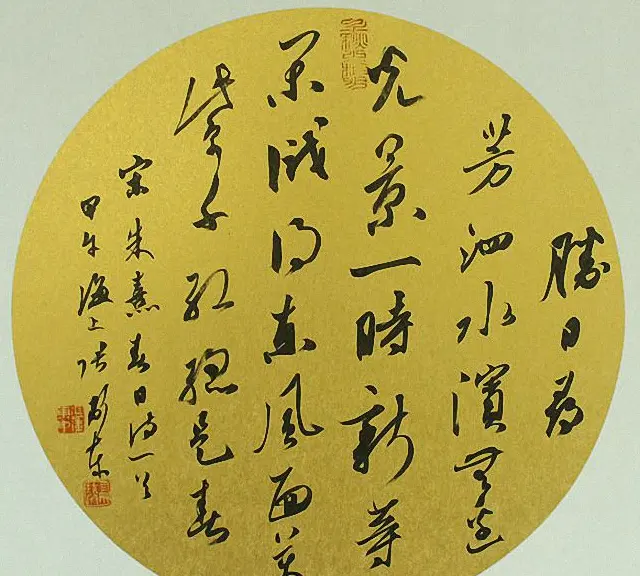 勝日尋
芳泗水濱無邊
光景一時新等
閒識得東風面萬
紫千紅總是春
宋朱熹春日詩一首
甲午海上張